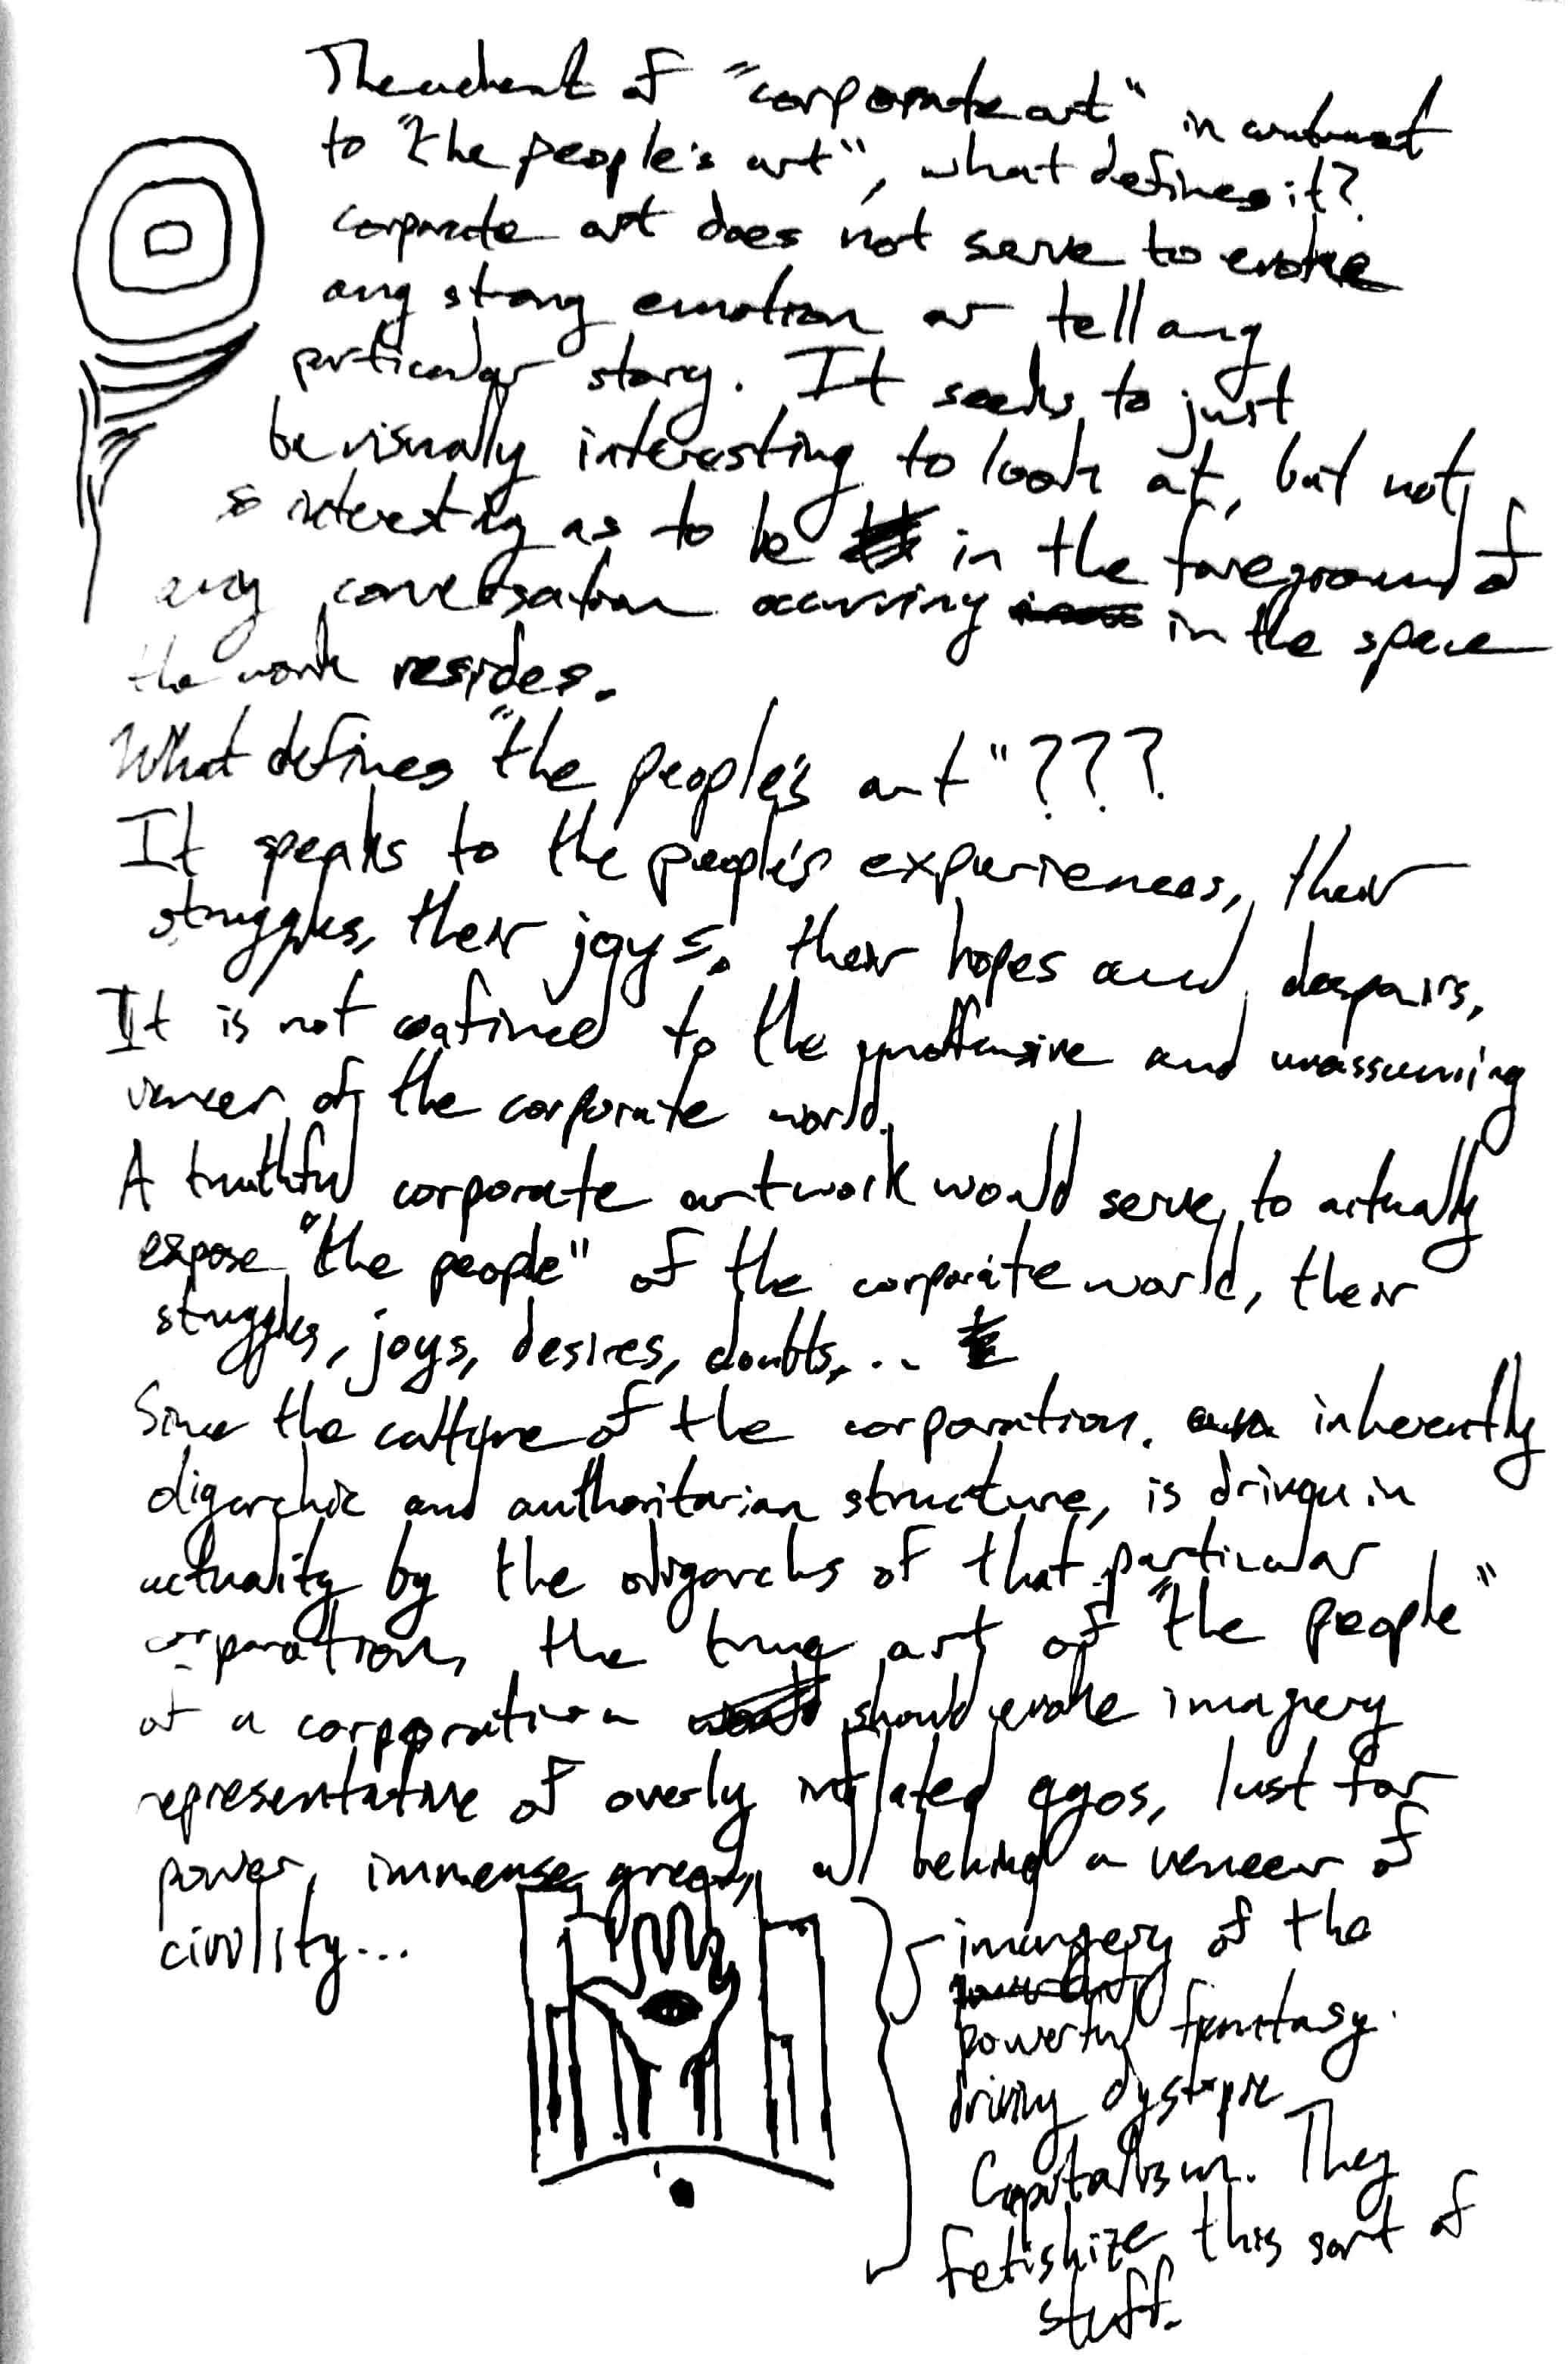 The advent of "corporate art" in contrast
to "the people's art", what defines it?
corporate art does not serve to evoke
any strong emotion or tell any
particular story. It seeks to just
be visually interesting to look at, but not
so interesting as to be in the foreground of
any conversation occurring in the space
the work resides.
What defines "the people's art"???
It speaks to the people's experiences, their
struggles, their joys, their hopes and despairs,
It is not confined to the unoffensive and unassuming
veneer of the corporate world.
A truthful corporate artwork would serve to actually
expose "the people" of the corporate world, their
struggles, joys, desires, doubts,...
Since the culture of the corporation, an inherently
oligarchic and authoritarian structure, is driven in
actuality by the oligarchs of that particular
corporation, the true art of "the people"
of a corporation should evoke imagery
representative of overly inflated egos, lust for
power, immense greed, all behind a veneer of
civility...
imagery of the
powerful fantasy
driving dystopic
Capitalism. They
fetishize this sort of
stuff.